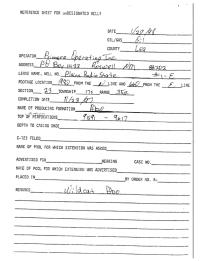 REFERENCE SHEET FOR UNDESIGNATED WELLS
DATE 1/20/88
OIL/GAS
COUNTY Lea
OPERATOR Primero Operating Inc
ADDRESS PO Box 1433 Roswell NM 88202
LEASE NAME, WELL NO. State #1-F
FOOTAGE LOCATION FROM THE LINE AND 660 FROM THE LINE
SECTION 23 TOWNSHIP 17s RANGE 35e
COMPLETION DATE
NAME OF PRODUCING FORMATION Abo
TOP OF PERFORATIONS -
DEPTH TO CASING SHOE
C-123 FILED
NAME OF POOL FOR WHICH EXTENSION WAS ASKED
ADVERTISED FOR HEARING CASE NO.
NAME OF POOL FOR WHICH EXTENSION WAS ADVERTISED
PLACED IN BY ORDER NO. R-
REMARKS Wildcat Abo